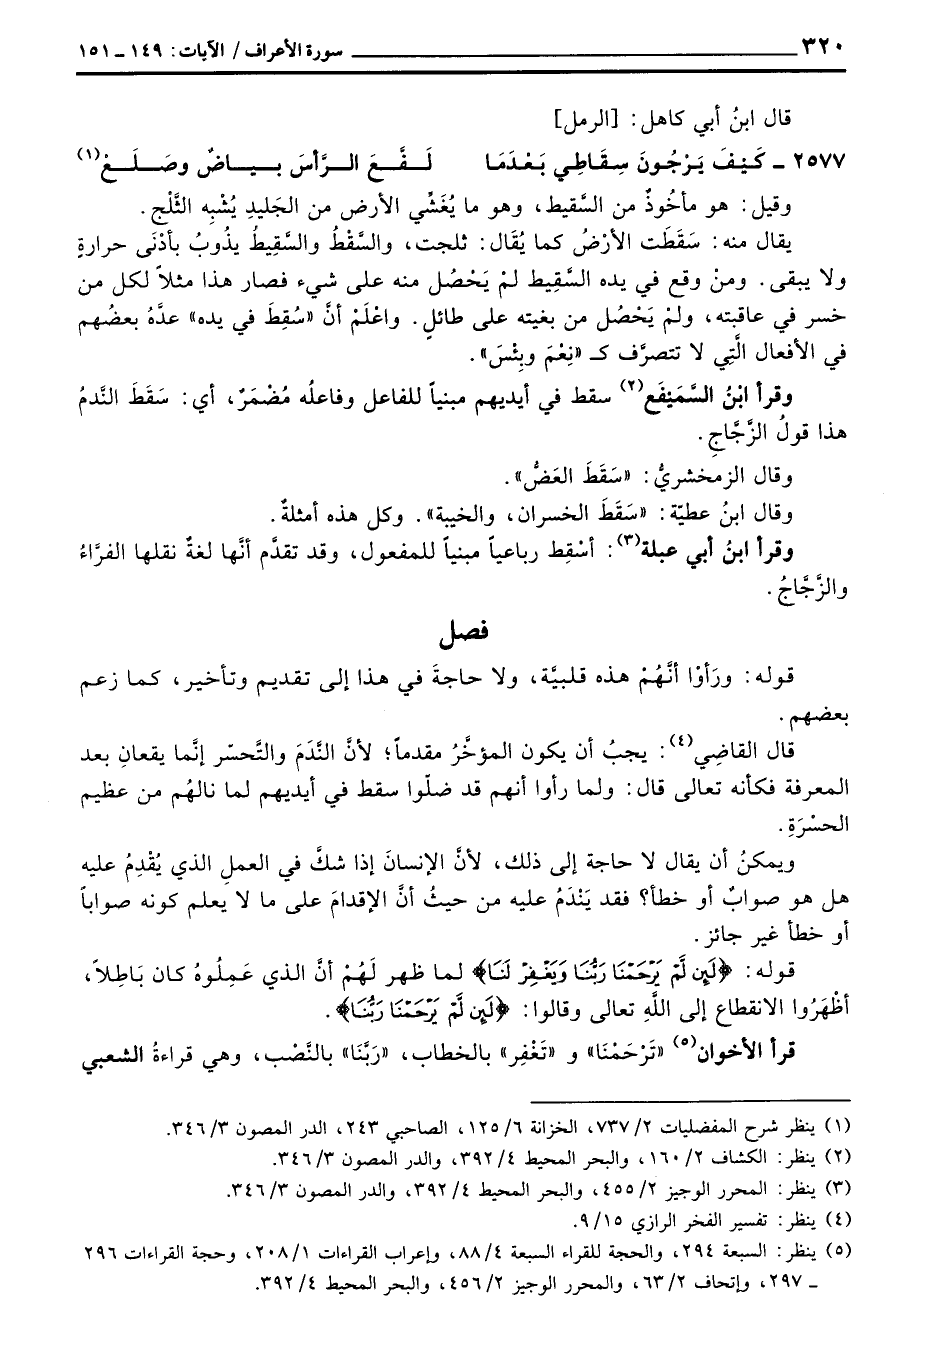 ٣٢٠ سورة الأعراف / الآيات: ١٤٩ ـ ١٥١
قال ابنُ أبي كاهل: [الرمل]
٢٥٧٧ ـ كَيْفَ يَرْجُونَ سِقَاطِي بَعْدَمَا لَفَّعَ الرَّأسَ بيـاضٌ وصَلَـعْ(١)
وقيل: هو مأخُوذٌ من السَّقيط، وهو ما يُغَشِّي الأرض من الجَليدِ يُشْبِه الثَّلْج.
يقال منه: سَقَطَت الأرْضُ كما يُقَال: ثلجت، والسَّقْطُ والسَّقِيطُ يذُوبُ بأدْنَى حرارةٍ
ولا يبقى. ومنْ وقع في يده السَّقِيط لمْ يَحْصُل منه على شيء فصار هذا مثلاً لكل من
خسر في عاقبته، ولمْ يَحْصُل من بغيته على طائلٍ. واعْلَم أنَّ «سُقِطَ في يده» عدَّهُ بعضُهم
في الأفعال الَّتِي لا تتصرَّف كـ «نِعْمَ وبِئْسَ».
وقرأ ابْنُ السَّمَيْفَع(٢) سقط في أيديهم مبنياً للفاعل وفاعلُه مُضْمَرٌ، أي: سَقَطَ النَّدمُ
هذا قولُ الزَّجَّاجِ.
وقال الزمخشريُّ: «سَقَطَ العَضُّ».
وقال ابنُ عطيّة: «سَقَطَ الخسران، والخيبة». وكل هذه أمثلةٌ.
وقرأ ابنُ أبي عبلة(٣): أسْقِط رباعياً مبنياً للمفعول، وقد تقدَّم أنَّها لغةٌ نقلها الفرَّاءُ
والزَّجَّاجُ.
فصل
قوله: ورَأوْا أنَّهُمْ هذه قلبيَّة، ولا حاجةَ في هذا إلى تقديم وتأخير، كما زعم
بعضهم.
قال القاضِي(٤): يجبُ أن يكون المؤخَّرُ مقدماً؛ لأنَّ النَّدَمَ والتَّحسّر إنَّما يقعانِ بعد
المعرفة فكأنه تعالى قال: ولما رأوا أنهم قد ضلّوا سقط في أيديهم لما نالهُم من عظيم
الحسْرَةِ.
ويمكنُ أن يقال لا حاجة إلى ذلك، لأنَّ الإنسانَ إذا شكَّ في العملِ الذي يُقْدِمُ عليه
هل هو صوابٌ أو خطأ؟ فقد يَنْدَمُ عليه من حيثُ أنَّ الإقدامَ على ما لا يعلم كونه صواباً
أو خطأ غير جائز.
قوله: ﴿لَئِن لَّمْ يَرْحَمْنَا رَبُّنَا وَيَغْفِرْ لَنَا﴾ لما ظهر لَهُمْ أنَّ الذي عَمِلُوهُ كان بَاطِلاً،
أظْهَرُوا الانقطاع إلى اللَّهِ تعالى وقالوا: ﴿لَئِن لَّمْ يَرْحَمْنَا رَبُّنَا﴾.
قرأ الأخوان(٥) «تَرْحَمْنَا» و «تَغْفِر» بالخطاب، «رَبَّنَا» بالنَّصْب، وهي قراءةُ الشعبي
(١) ينظر شرح المفضليات ٢/ ٧٣٧، الخزانة ٦/ ١٢٥، الصاحبي ٢٤٣، الدر المصون ٣/ ٣٤٦.
(٢) ينظر: الكشاف ٢/ ١٦٠، والبحر المحيط ٤/ ٣٩٢، والدر المصون ٣/ ٣٤٦.
(٣) ينظر: المحرر الوجيز ٢/ ٤٥٥، والبحر المحيط ٤/ ٣٩٢، والدر المصون ٣/ ٣٤٦.
(٤) ينظر: تفسير الفخر الرازي ١٥/ ٩.
(٥) ينظر: السبعة ٢٩٤، والحجة للقراء السبعة ٤/ ٨٨، وإعراب القراءات ١/ ٢٠٨، وحجة القراءات ٢٩٦
ـ ٢٩٧، وإتحاف ٢/ ٦٣، والمحرر الوجيز ٢/ ٤٥٦، والبحر المحيط ٤/ ٣٩٢.